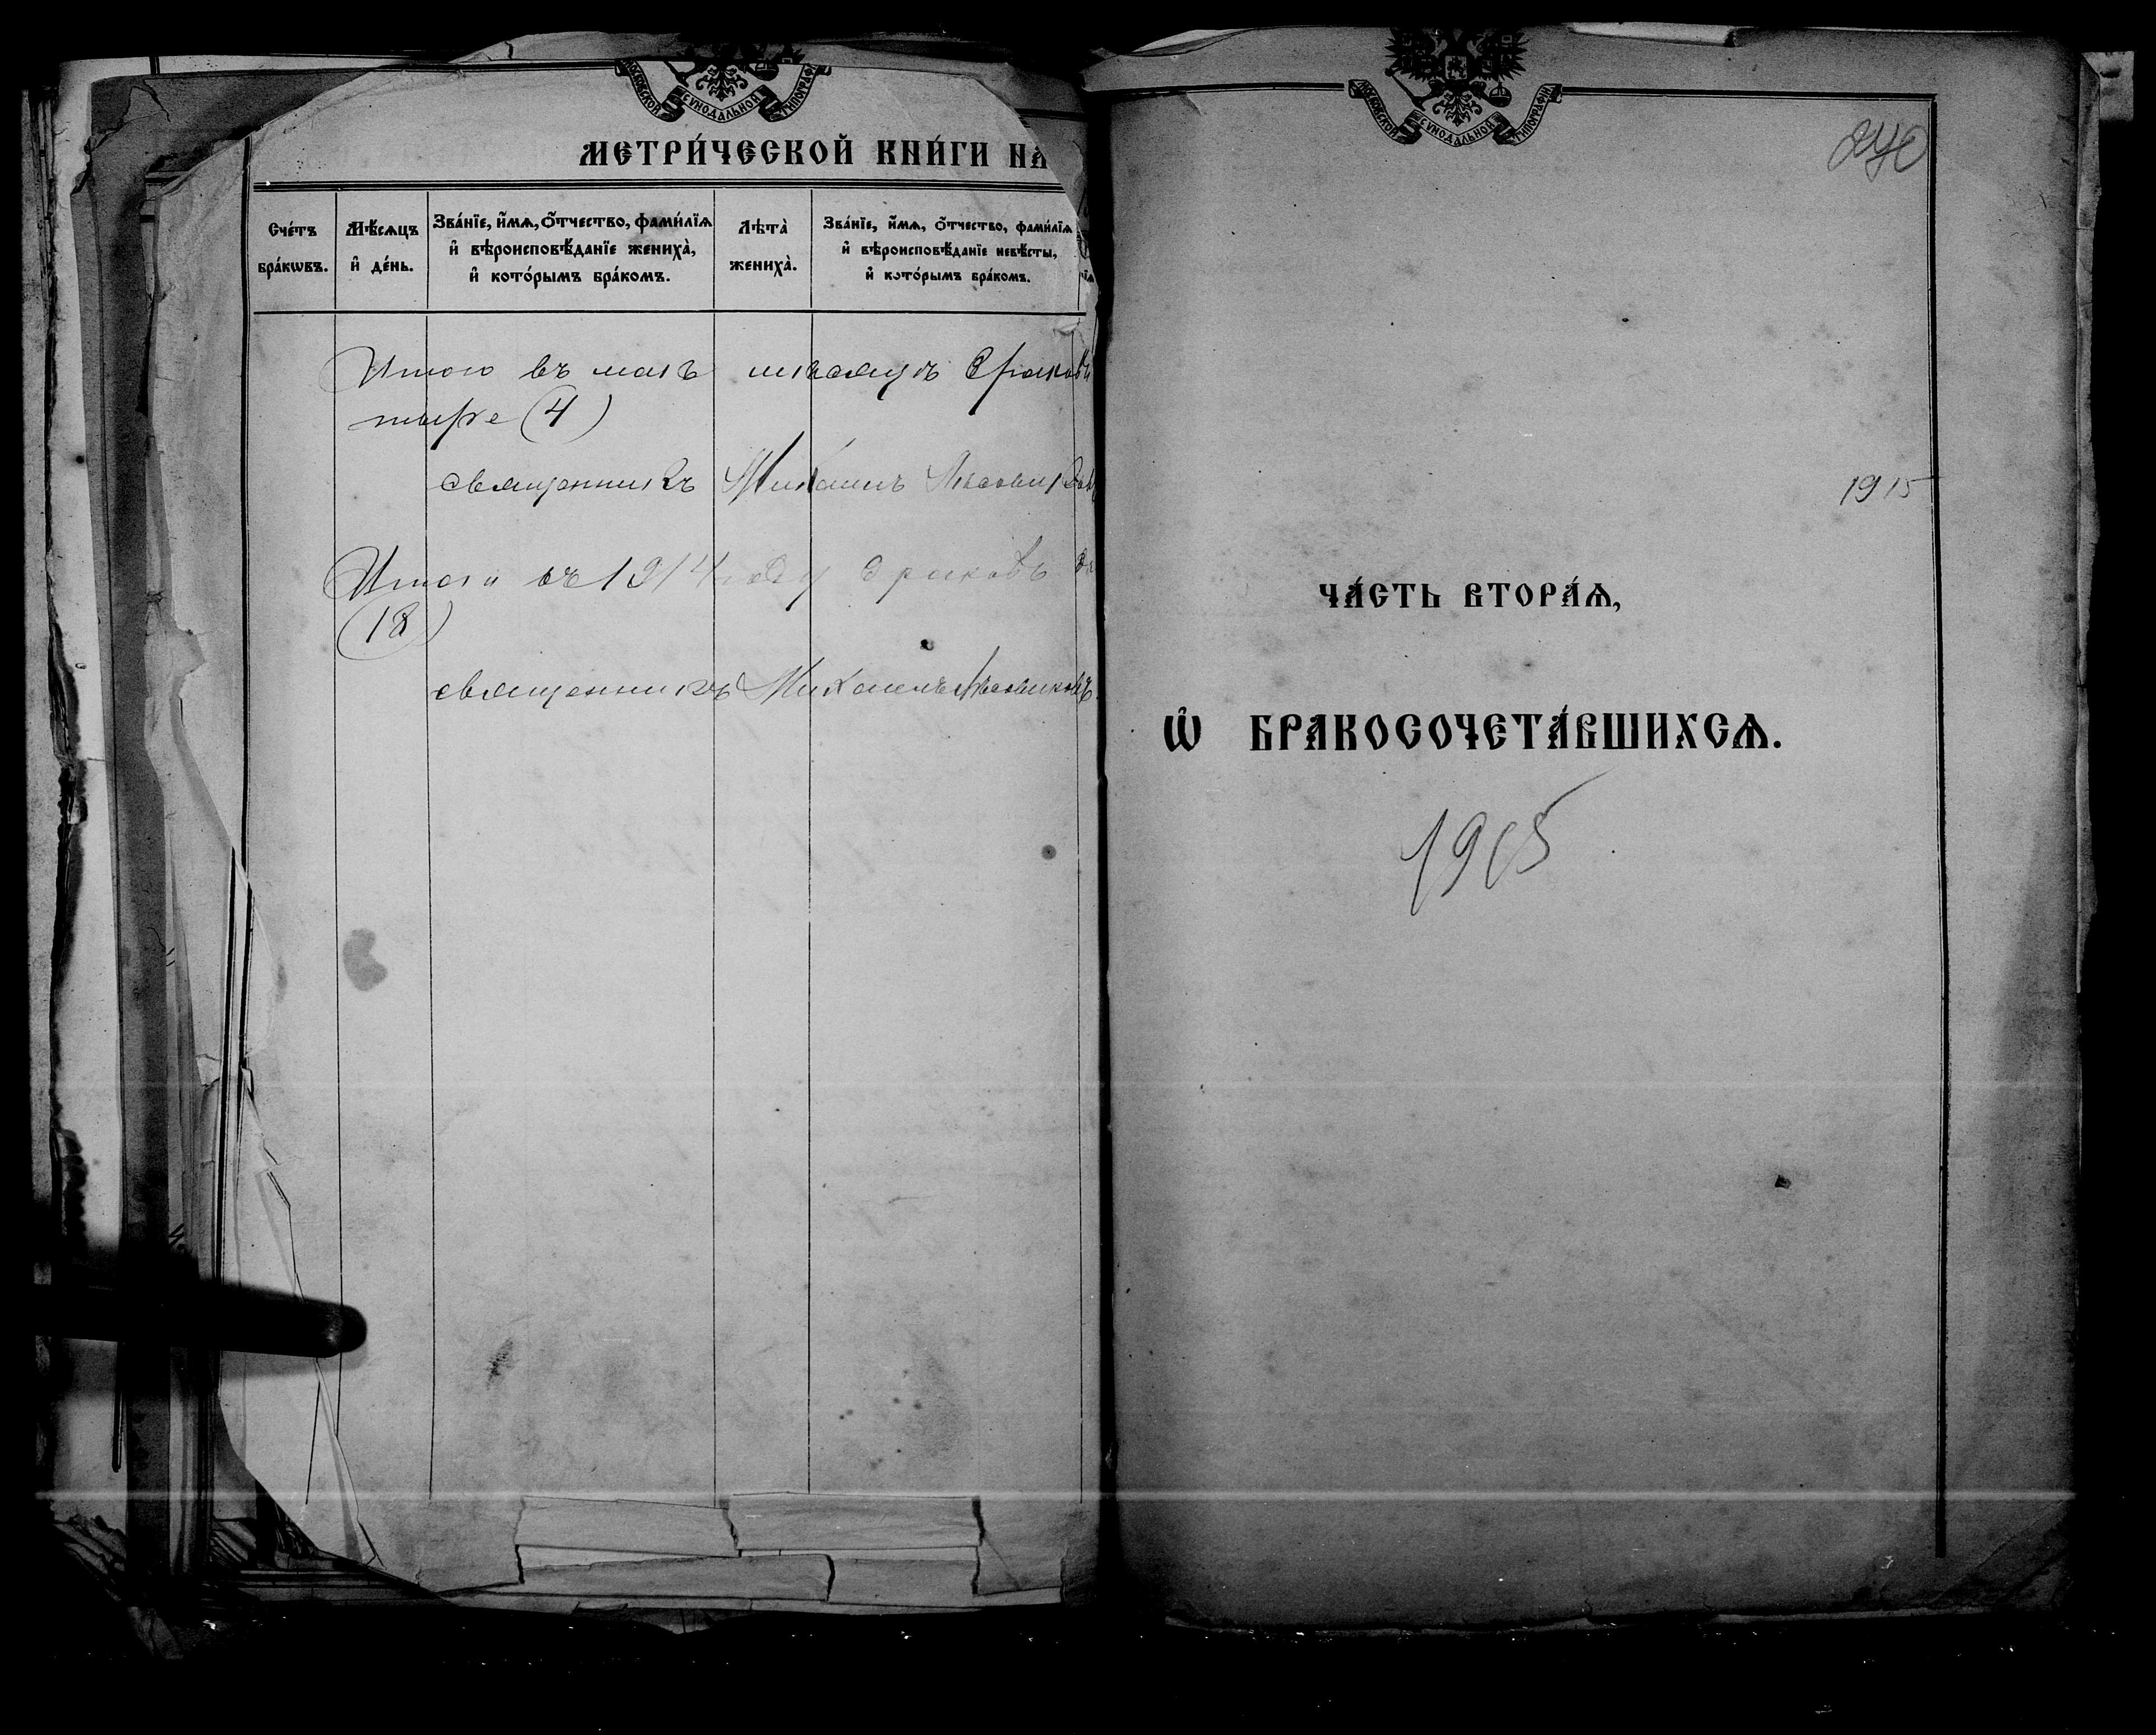 МОСКОВСКОЙ СѴНОДАЛЬНОЙ ТИПОГРАФІИ
МЕТРИ́ЧЕСКОЙ КНИ́ГИ НА
Сче́тъ бра́кѡвъ.
Мѣ́сѧцъ и҆ де́нь.
Зва́нїе, и҆́мѧ, ѻ҆́тчество, фами́лїѧ
и҆ вѣроисповѣ́данїе жениха̀,
и҆ кото́рымъ бра́комъ.
Лѣта̀
жениха̀.
Зва́нїе, и҆́мѧ, ѻ҆́тчество, фами́лїѧ
и҆ вѣроисповѣ́данїе невѣ́сты,
и҆ кото́рымъ бра́комъ.
Итого въ маѣ мѣсяцѣ браковъ
тыре (4)
священникъ Михаилъ
Итого въ 1914 году браковъ
(18)
священникъ Михаилъ
МОСКОВСКОЙ СѴНОДАЛЬНОЙ ТИПОГРАФІИ
240
1915
ЧА́СТЬ ВТОРА́Ѧ,
Ѡ҆ БРАКОСОЧЕТА́ВШИХСѦ.
1915